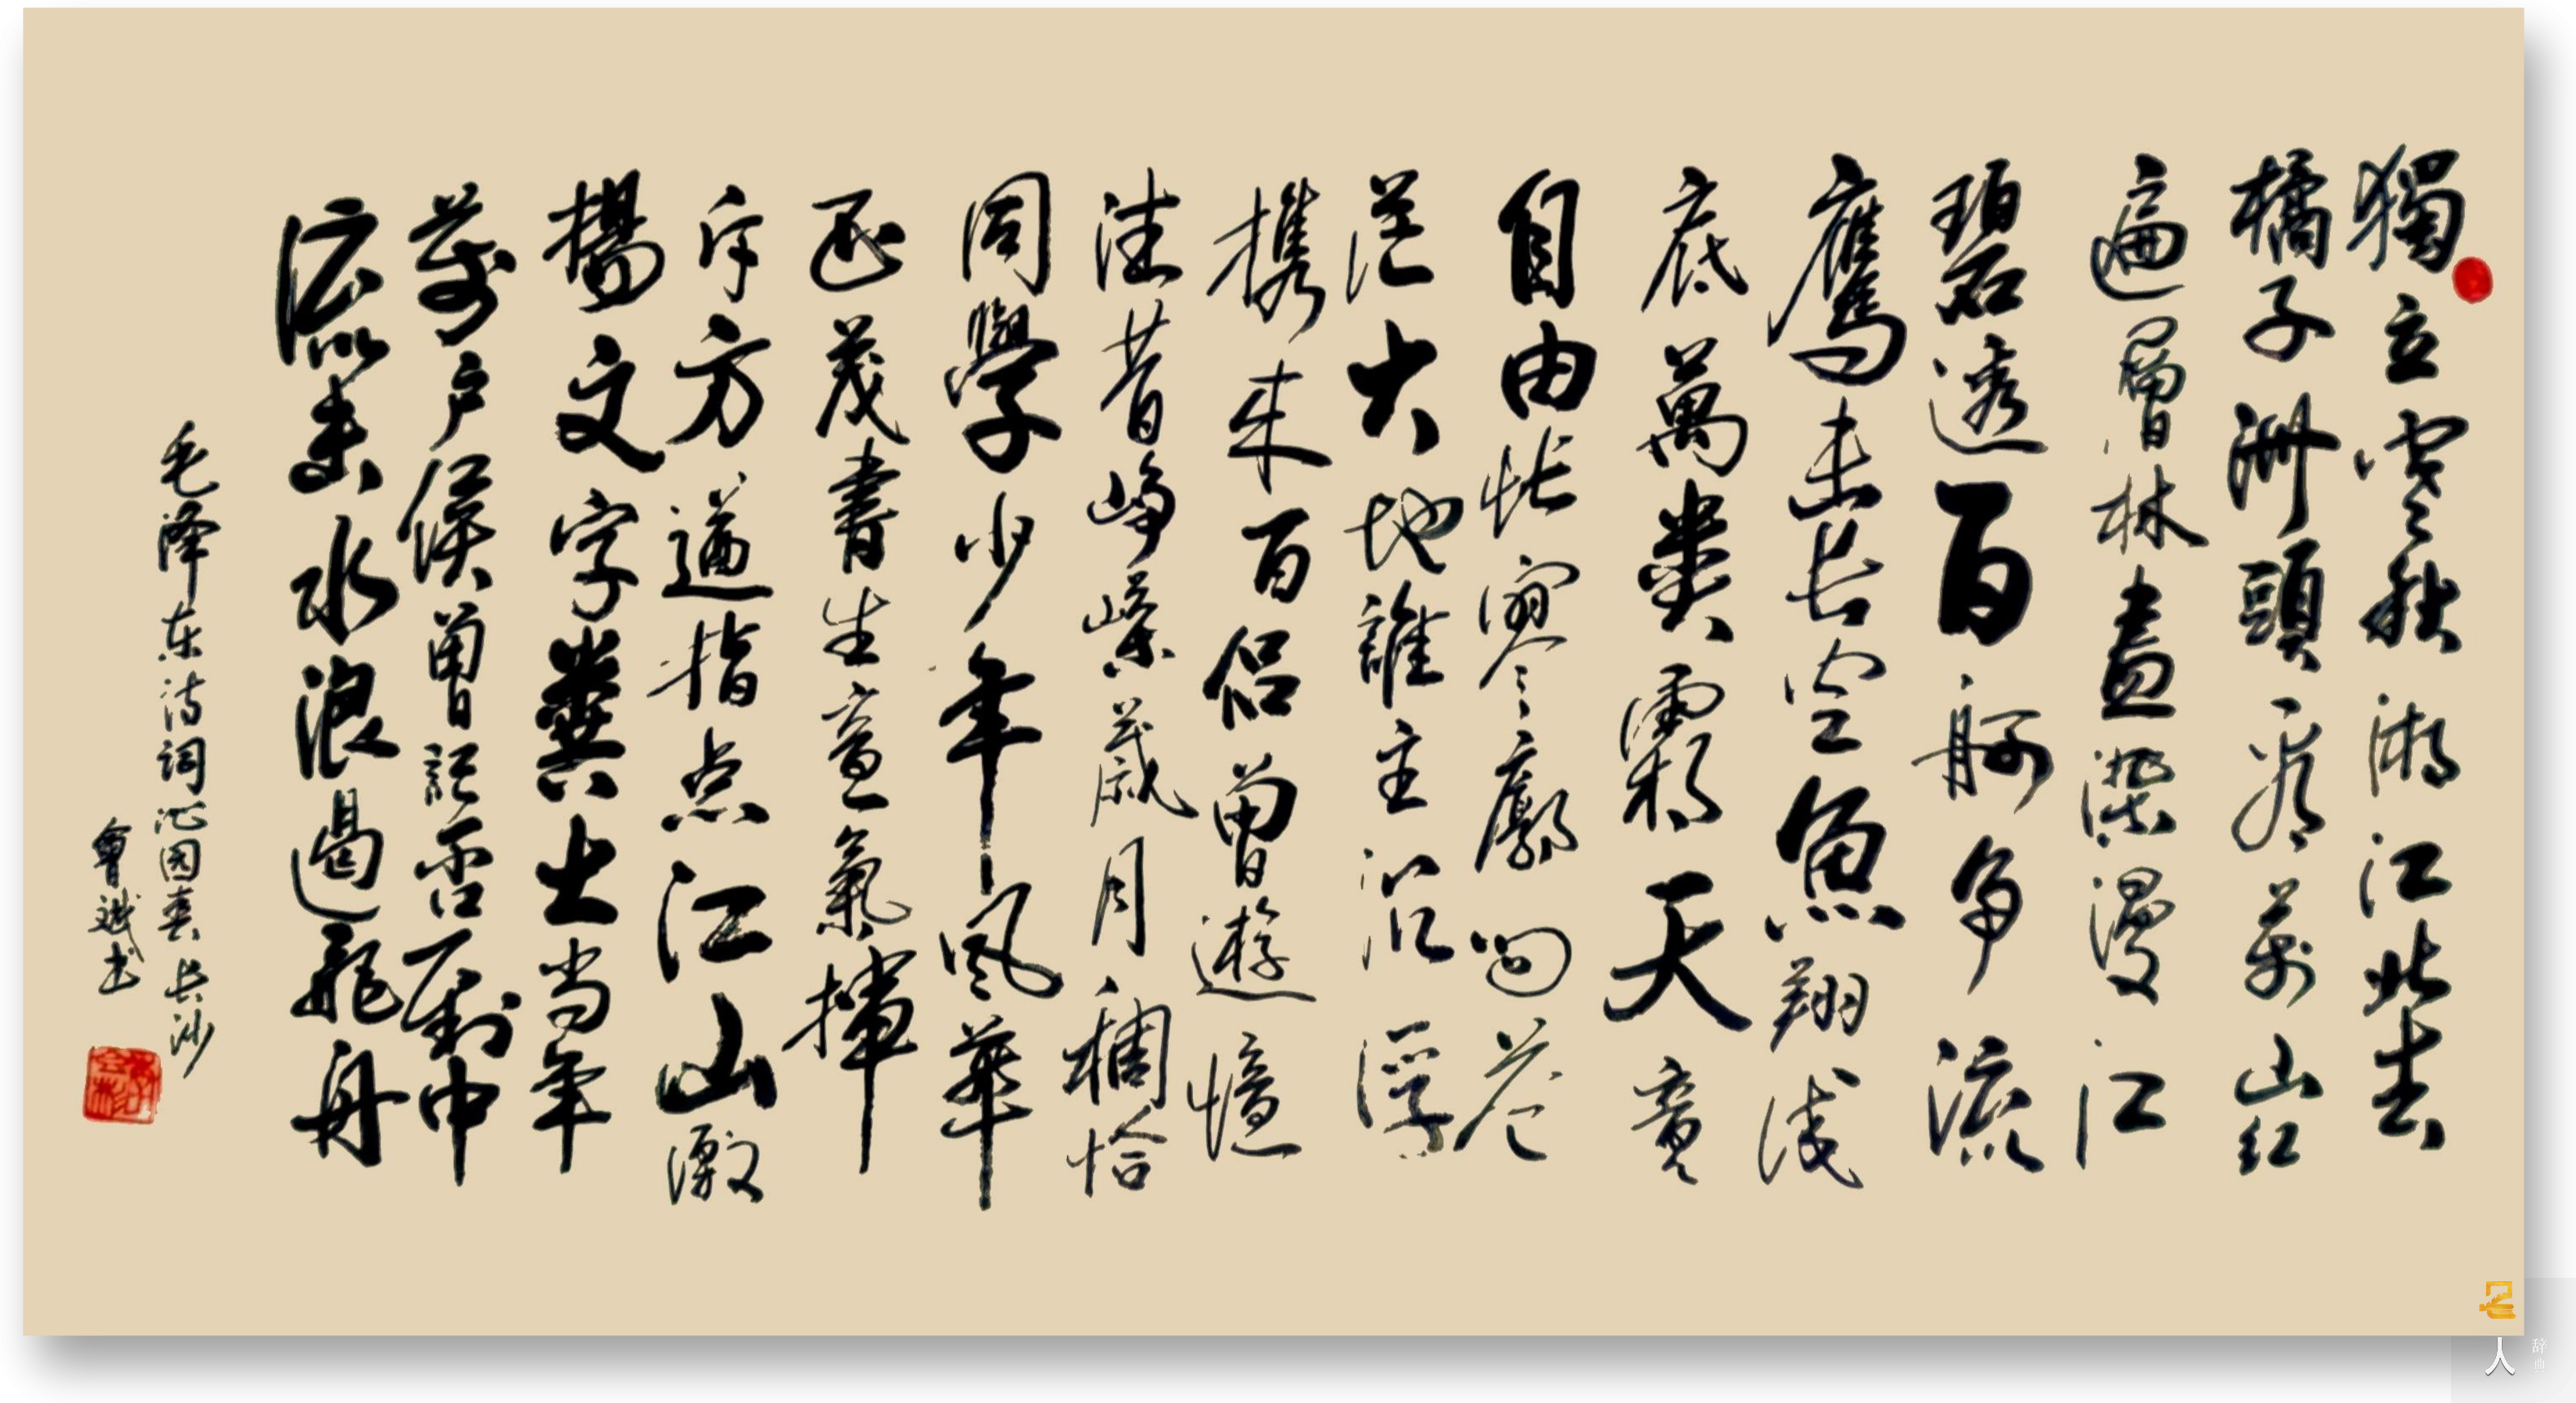 獨立寒秋湘江北去
橘子洲頭看萬山红
遍層林盡染漫江
碧透百舸争流
鷹击长空魚翔浅
底萬类霜天竞
自由怅寥廓问苍
茫大地誰主沉浮
携来百侣曾遊憶
往昔峥嵘歲月稠恰
同學少年风華
正茂書生意氣揮
斥方遒指点江山激
揚文字糞土当年
萬户侯曾記否到中
流击水浪遏飛舟
毛泽东诗词沁园春长沙
會斌书
名人辞典